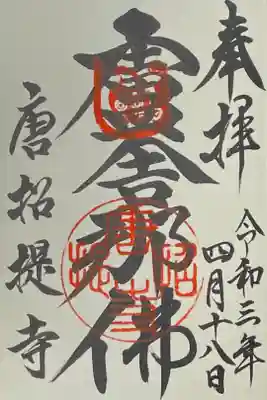 奉拝
令和三年
四月十八日
盧舎那佛
唐招提寺